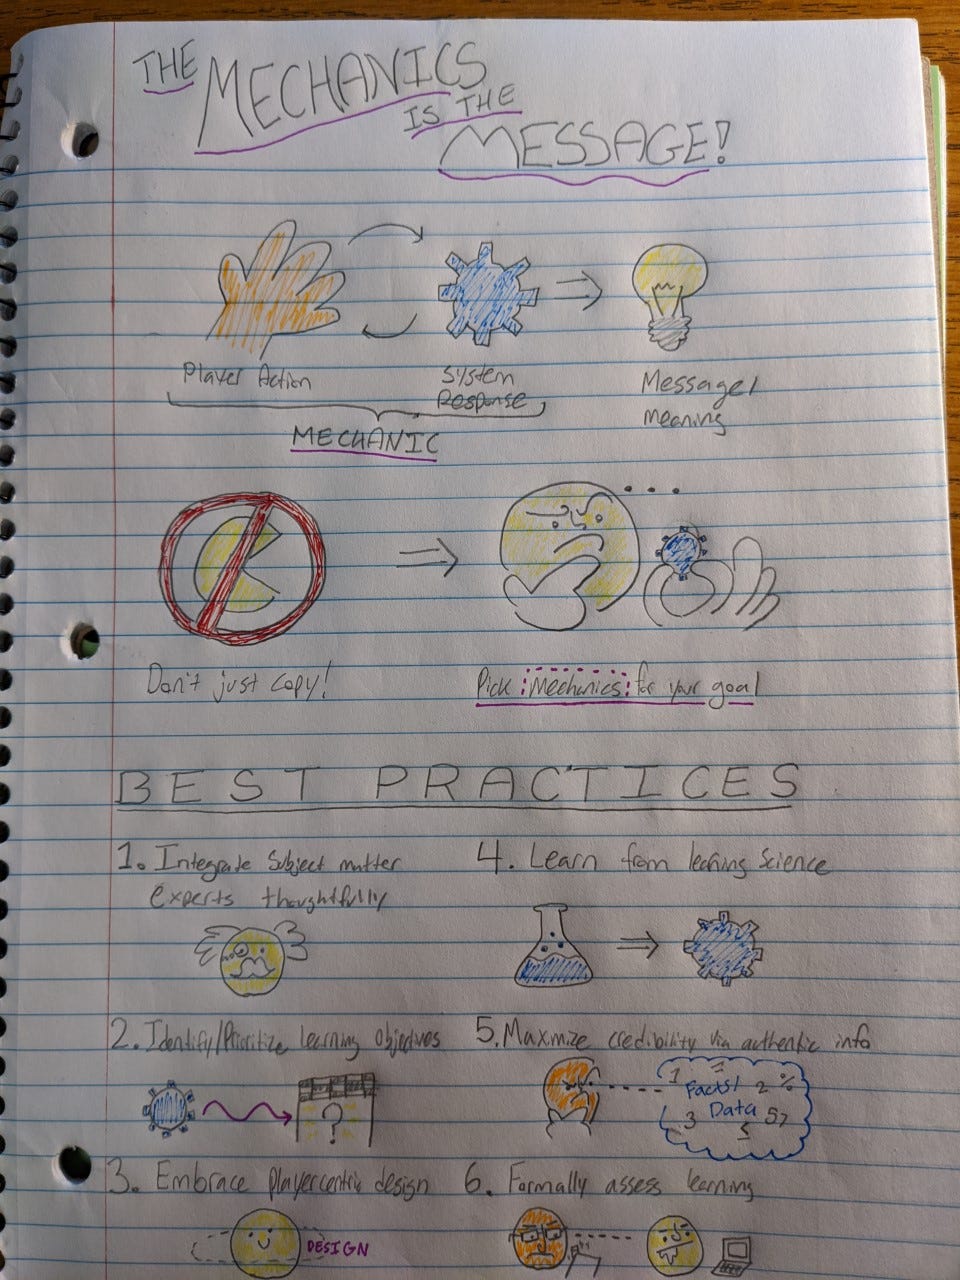 THE
MECHANICS
IS THE
MESSAGE!
Player Action
System
Response
Message/
meaning
MECHANIC
Don't just copy!
Pick Mechanics for your goal
BEST PRACTICES
1. Integrate Subject matter
experts thoughtfully
2. Identify/Prioritize learning Objectives
?
3. Embrace playercentric design
DESIGN
4. Learn from learning Science
5. Maximize credibility via authentic info
1 = 2 %
Facts/
Data
3 57
6. Formally assess learning